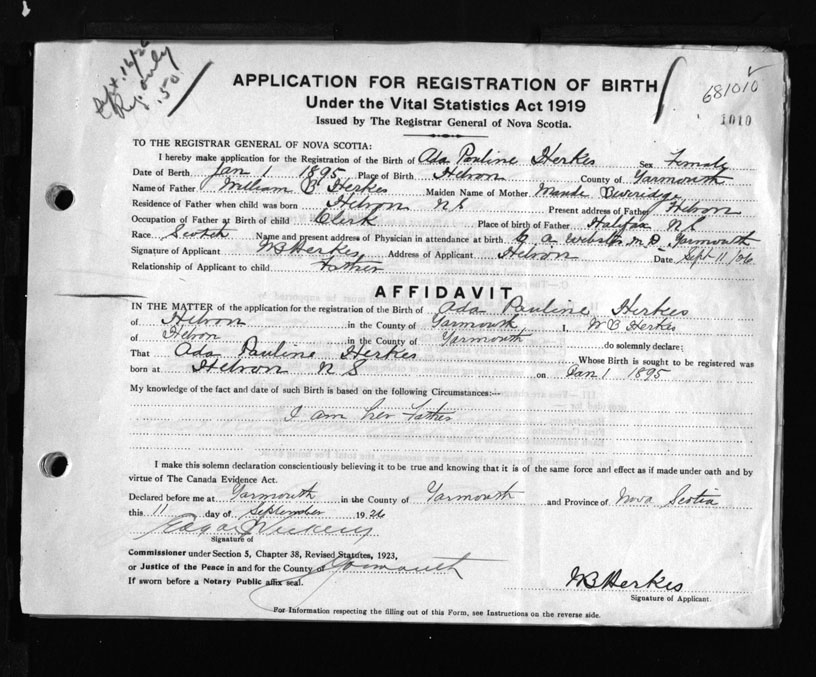 Sept. 16/26
Reg. only
.50
681010
1010
APPLICATION FOR REGISTRATION OF BIRTH
Under the Vital Statistics Act 1919
Issued by The Registrar General of Nova Scotia.
TO THE REGISTRAR GENERAL OF NOVA SCOTIA:
I hereby make application for the Registration of the Birth of Ada Pauline Herkes Sex Female
Date of Birth Jan 1 1895 Place of Birth Hebron County of Yarmouth
Name of Father William B Herkes Maiden Name of Mother Maude Beveridge
Residence of Father when child was born Hebron N S Present address of Father Hebron
Occupation of Father at Birth of child Clerk Place of birth of Father Halifax N S
Race Scotch Name and present address of Physician in attendance at birth G. A. Webster M. D. Yarmouth
Signature of Applicant W B Herkes Address of Applicant Hebron Date Sept 11/26
Relationship of Applicant to child Father
AFFIDAVIT
IN THE MATTER of the application for the registration of the Birth of Ada Pauline Herkes
of Hebron in the County of Yarmouth I, W B Herkes
of Hebron in the County of Yarmouth do solemnly declare;
That Ada Pauline Herkes Whose Birth is sought to be registered was
born at Hebron N S on Jan 1 1895
My knowledge of the fact and date of such Birth is based on the following Circumstances:—
I am her Father
I make this solemn declaration conscientiously believing it to be true and knowing that it is of the same force and effect as if made under oath and by
virtue of The Canada Evidence Act.
Declared before me at Yarmouth in the County of Yarmouth and Province of Nova Scotia
this 11 day of September 1926
Signature of
Commissioner under Section 5, Chapter 38, Revised Statutes, 1923,
or Justice of the Peace in and for the County of Yarmouth
If sworn before a Notary Public affix seal.
W B Herkes
Signature of Applicant.
For Information respecting the filling out of this Form, see Instructions on the reverse side.